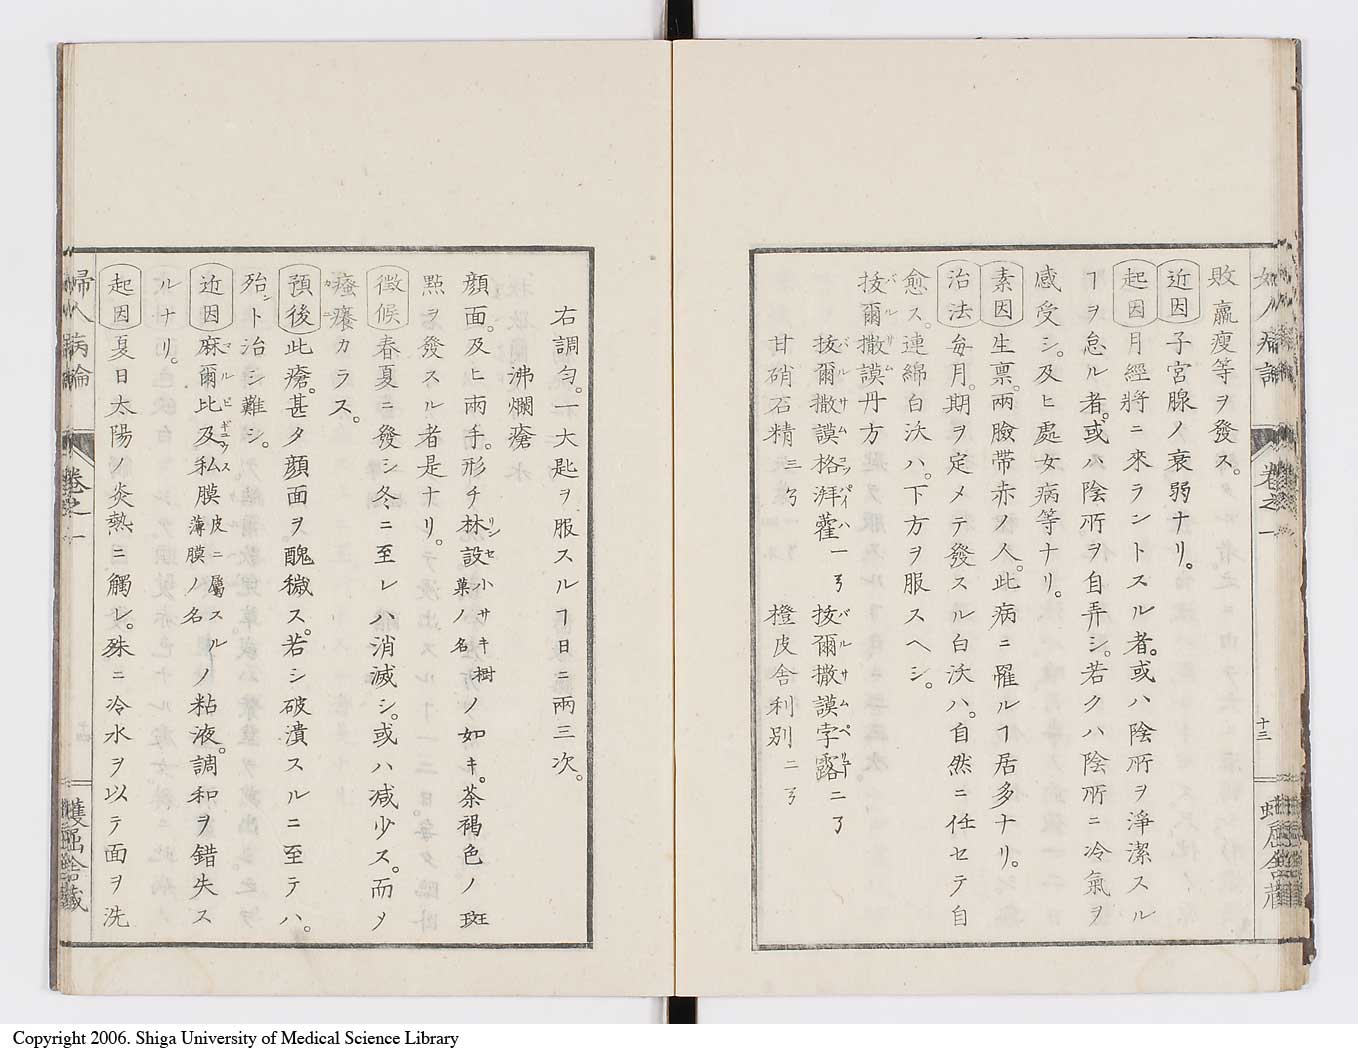 敗羸瘦等ヲ發ス。
近因 子宮腺ノ衰弱ナリ。
起因 月經將ニ來ラントスル者。或ハ陰所ヲ淨潔スル
ヿヲ怠ル者。或ハ陰所ヲ自弄シ。若クハ陰所ニ冷氣ヲ
感受シ。及ヒ處女病等ナリ。
素因 生稟。兩臉帶赤ノ人。此病ニ罹ルヿ居多ナリ。
治法 每月。期ヲ定メテ發スル白沃ハ。自然ニ任セテ自
愈ス。連綿白沃ハ。下方ヲ服スヘシ。
拔爾撒謨丹方
拔爾撒謨格湃藿一ゟ 拔爾撒謨孛露二了
甘硝石精三ゟ 橙皮舍利別二ゟ
十三
右調勻。一大匙ヲ服スルヿ日ニ兩三次。
沸爛瘡
顏面。及ヒ兩手。形チ林設小サキ樹菓ノ名ノ如キ。茶褐色ノ斑
點ヲ發スル者是ナリ。
徵候 春夏ニ發シ冬ニ至レハ消滅シ。或ハ減少ス。而メ
瘙癢カラス。
預後 此瘡。甚タ顏面ヲ。醜穢ス。若シ破潰スルニ至テハ。
殆ント治シ難シ。
近因 麻爾比及私膜皮ニ屬スル薄膜ノ名ノ粘液。調和ヲ錯失ス
ルナリ。
起因 夏日太陽ノ炎熱ニ觸レ。殊ニ冷水ヲ以テ面ヲ洗
婦人病論
卷之一
蠖屈舍藏
Copyright 2006. Shiga University of Medical Science Library